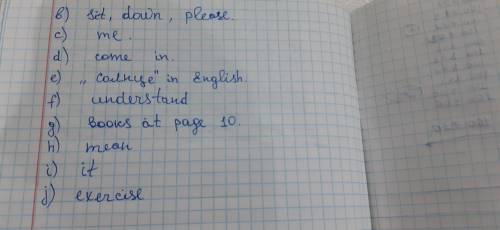 b) sit, down, please.
c) me.
d) come in.
e) „солнце" in English.
f) understand
g) books at page 10.
h) mean
i) it
j) exercise